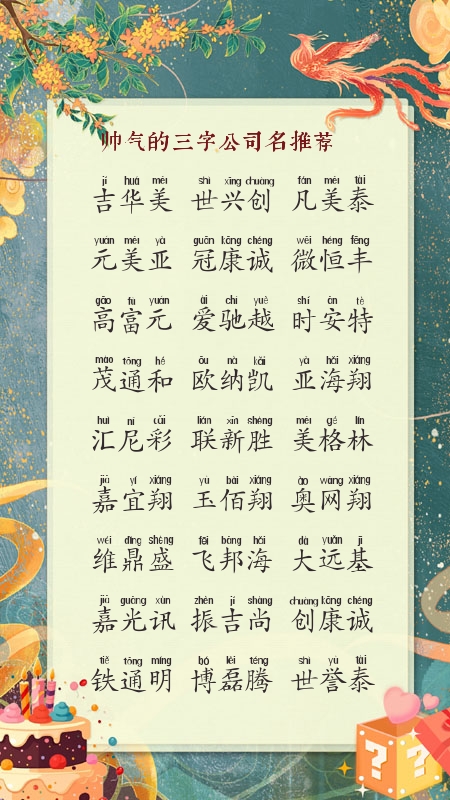 帅气的三字公司名推荐
jí huá měi shì xīng chuàng fán měi tài
吉华美 世兴创 凡美泰
yuán měi yà guān kāng chéng wēi héng fēng
元美亚 冠康诚 微恒丰
gāo fù yuán ài chí yuè shí ān tè
高富元 爱驰越 时安特
mào tōng hé ōu nà kǎi yà hǎi xiáng
茂通和 欧纳凯 亚海翔
huì ní cǎi lián xīn shèng měi gé lín
汇尼彩 联新胜 美格林
jiā yí xiáng yù bǎi xiáng ào wǎng xiáng
嘉宜翔 玉佰翔 奥网翔
wéi dǐng shèng fēi bāng hǎi dà yuǎn jī
维鼎盛 飞邦海 大远基
jiā guāng xùn zhèn jí shàng chuàng kāng chéng
嘉光讯 振吉尚 创康诚
tiě tōng míng bó lěi téng shì yù tài
铁通明 博磊腾 世誉泰
? ?